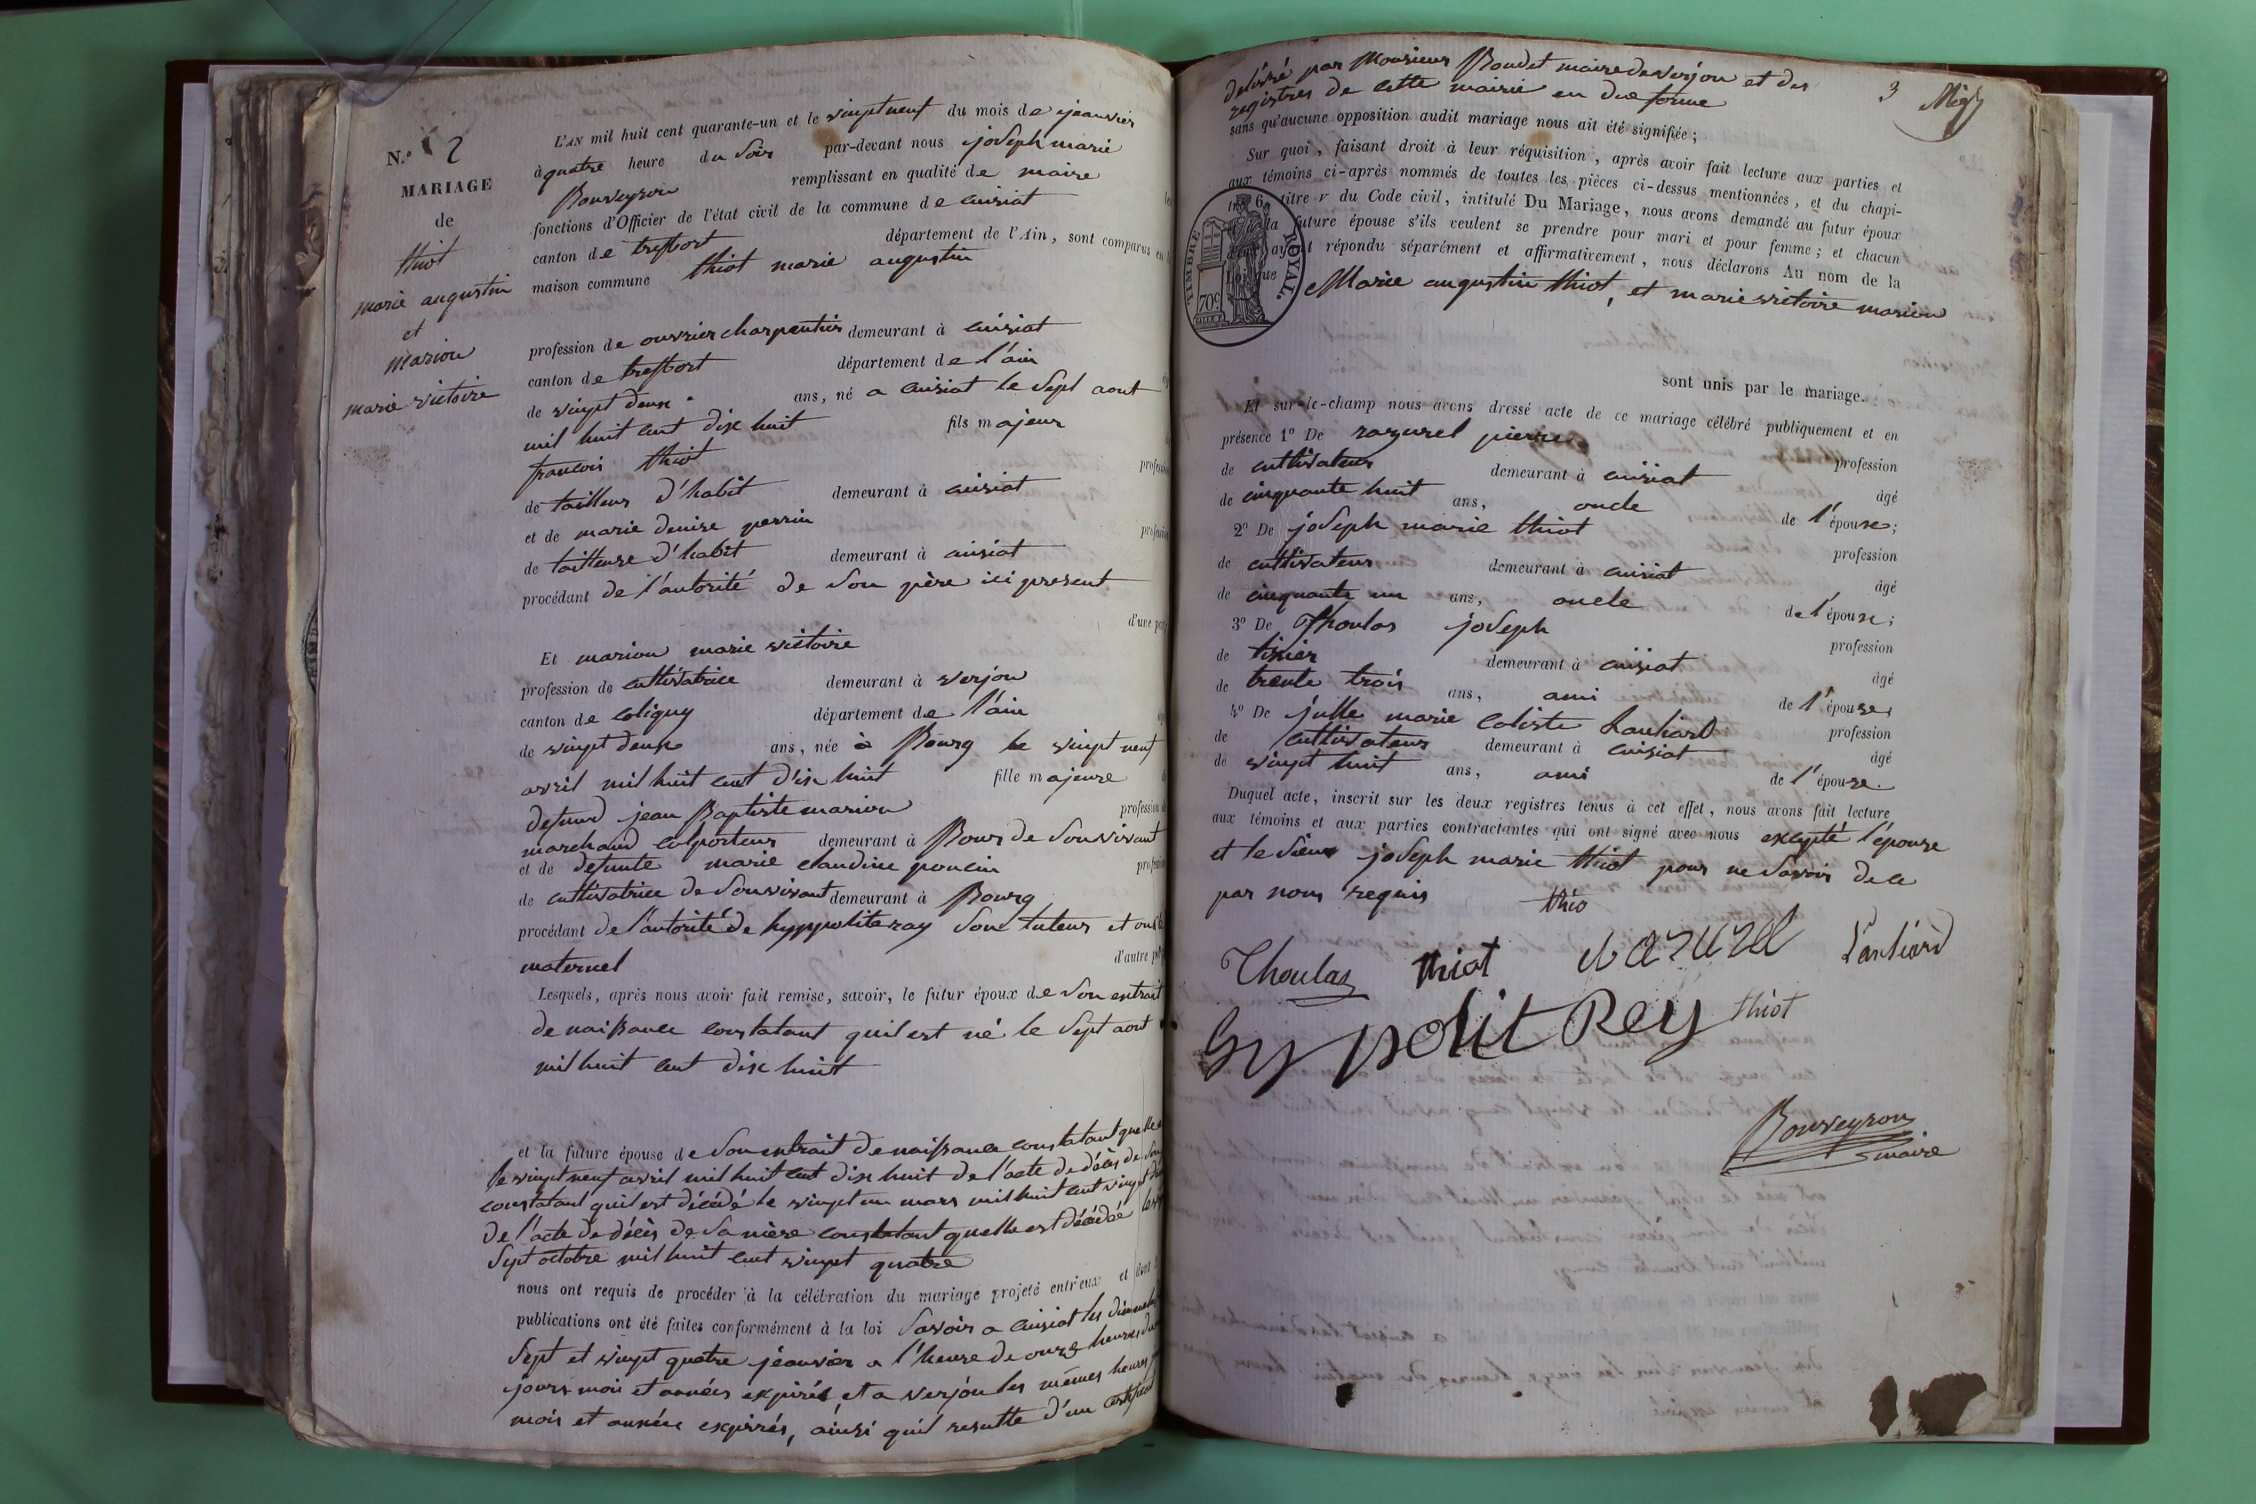 N.º 2
MARIAGE
de
thiot
marie augustin
et
marion
marie victoire
L'AN mil huit cent quarante-un et le vingt neuf du mois de jeanvier
à quatre heure du Soir par-devant nous joseph marie
Bouveyron remplissant en qualité de maire les
fonctions d'Officier de l'état civil de la commune de cuisiat
canton de treffort département de l'Ain, sont comparus en la
maison commune thiot marie augustin
profession de ouvrier charpentier demeurant à cuisiat
canton de treffort département de l'ain
de vingt deux ans, né a cuisiat le Sept aout
mil huit cent dix huit fils majeur
francois thiot profession
de tailleur d'habit demeurant à cuisiat
et de marie denise perrin profession
de tailleuse d'habit demeurant à cuisiat
procédant de l'autorité de Son père ici present
d'une part
Et marion marie victoire
profession de cultivatrice demeurant à verjon
canton de coligny département de l'ain
de vingt deux ans, née à Bourg le vingt neuf
avril mil huit cent dix huit fille majeure
defund jean Baptiste marion profession
marchand colporteur demeurant à Bour de Son vivant
et de defunte marie claudine poncin profession
de cultivatrice de Son vivant demeurant à Bourg
procédant de l'autorité de hyppolite ray Son tuteur et oncle
maternel d'autre part
Lesquels, après nous avoir fait remise, savoir, le futur époux de Son extrait
de naissance constatant quil est né le Sept aout
mil huit cent dix huit
et la future épouse de Son extrait de naissance constatant quelle
le vingt neuf avril mil huit cent dix huit de l'acte de décès de Son
constatant quil est décédé le vingt un mars mil huit cent vingt
De l'acte de décès de Sa mère constatant quelle est décédée le
Sept octobre mil huit cent vingt quatre
nous ont requis de procéder à la célébration du mariage projeté entr'eux et dont
publications ont été faites conformément à la loi Savoir a cuisiat les dimanches
Sept et vingt quatre jeanvier a l'heure de onze heures du
jours mois et années expirés, et a verjon les mêmes heures
mois et années expirés, ainsi quil resulte d'un certificat
delivré par Monsieur Boudet maire de verjon et des
registres de cette mairie en due forme
3
sans qu'aucune opposition audit mariage nous ait été signifiée;
Sur quoi, faisant droit à leur réquisition, après avoir fait lecture aux parties et
aux témoins ci-après nommés de toutes les pièces ci-dessus mentionnées, et du chapi-
tre 6, titre v du Code civil, intitulé Du Mariage, nous avons demandé au futur époux
la future épouse s'ils veulent se prendre pour mari et pour femme; et chacun
ayant répondu séparément et affirmativement, nous déclarons Au nom de la
Loi que Marie augustin thiot, et marie victoire marion
TIMBRE ROYAL.
70c
sont unis par le mariage.
Et sur-le-champ nous avons dressé acte de ce mariage célébré publiquement et en
présence 1º De razurel pierre profession
de cultivateur demeurant à cuisiat âgé
de cinquante huit ans, oncle de l'épouse;
2º De joseph marie thiot profession
de cultivateur demeurant à cuisiat âgé
de cinquante un ans, oncle de l'épouse;
3º De Thoulas joseph profession
de tisier demeurant à cuisiat âgé
de trente trois ans, ami de l'épouse,
4º De julle marie caliste Lauliard profession
de cultivateur demeurant à cuisiat âgé
de vingt huit ans, ami de l'épouse.
Duquel acte, inscrit sur les deux registres tenus à cet effet, nous avons fait lecture
aux témoins et aux parties contractantes qui ont signé avec nous excepté l'épouse
et le Sieur joseph marie thiot pour ne Savoir de ce
par nous requis
thio
Thoulas thiot razurel Lauliard
hypolit Rey thiot
Bouveyron
maire